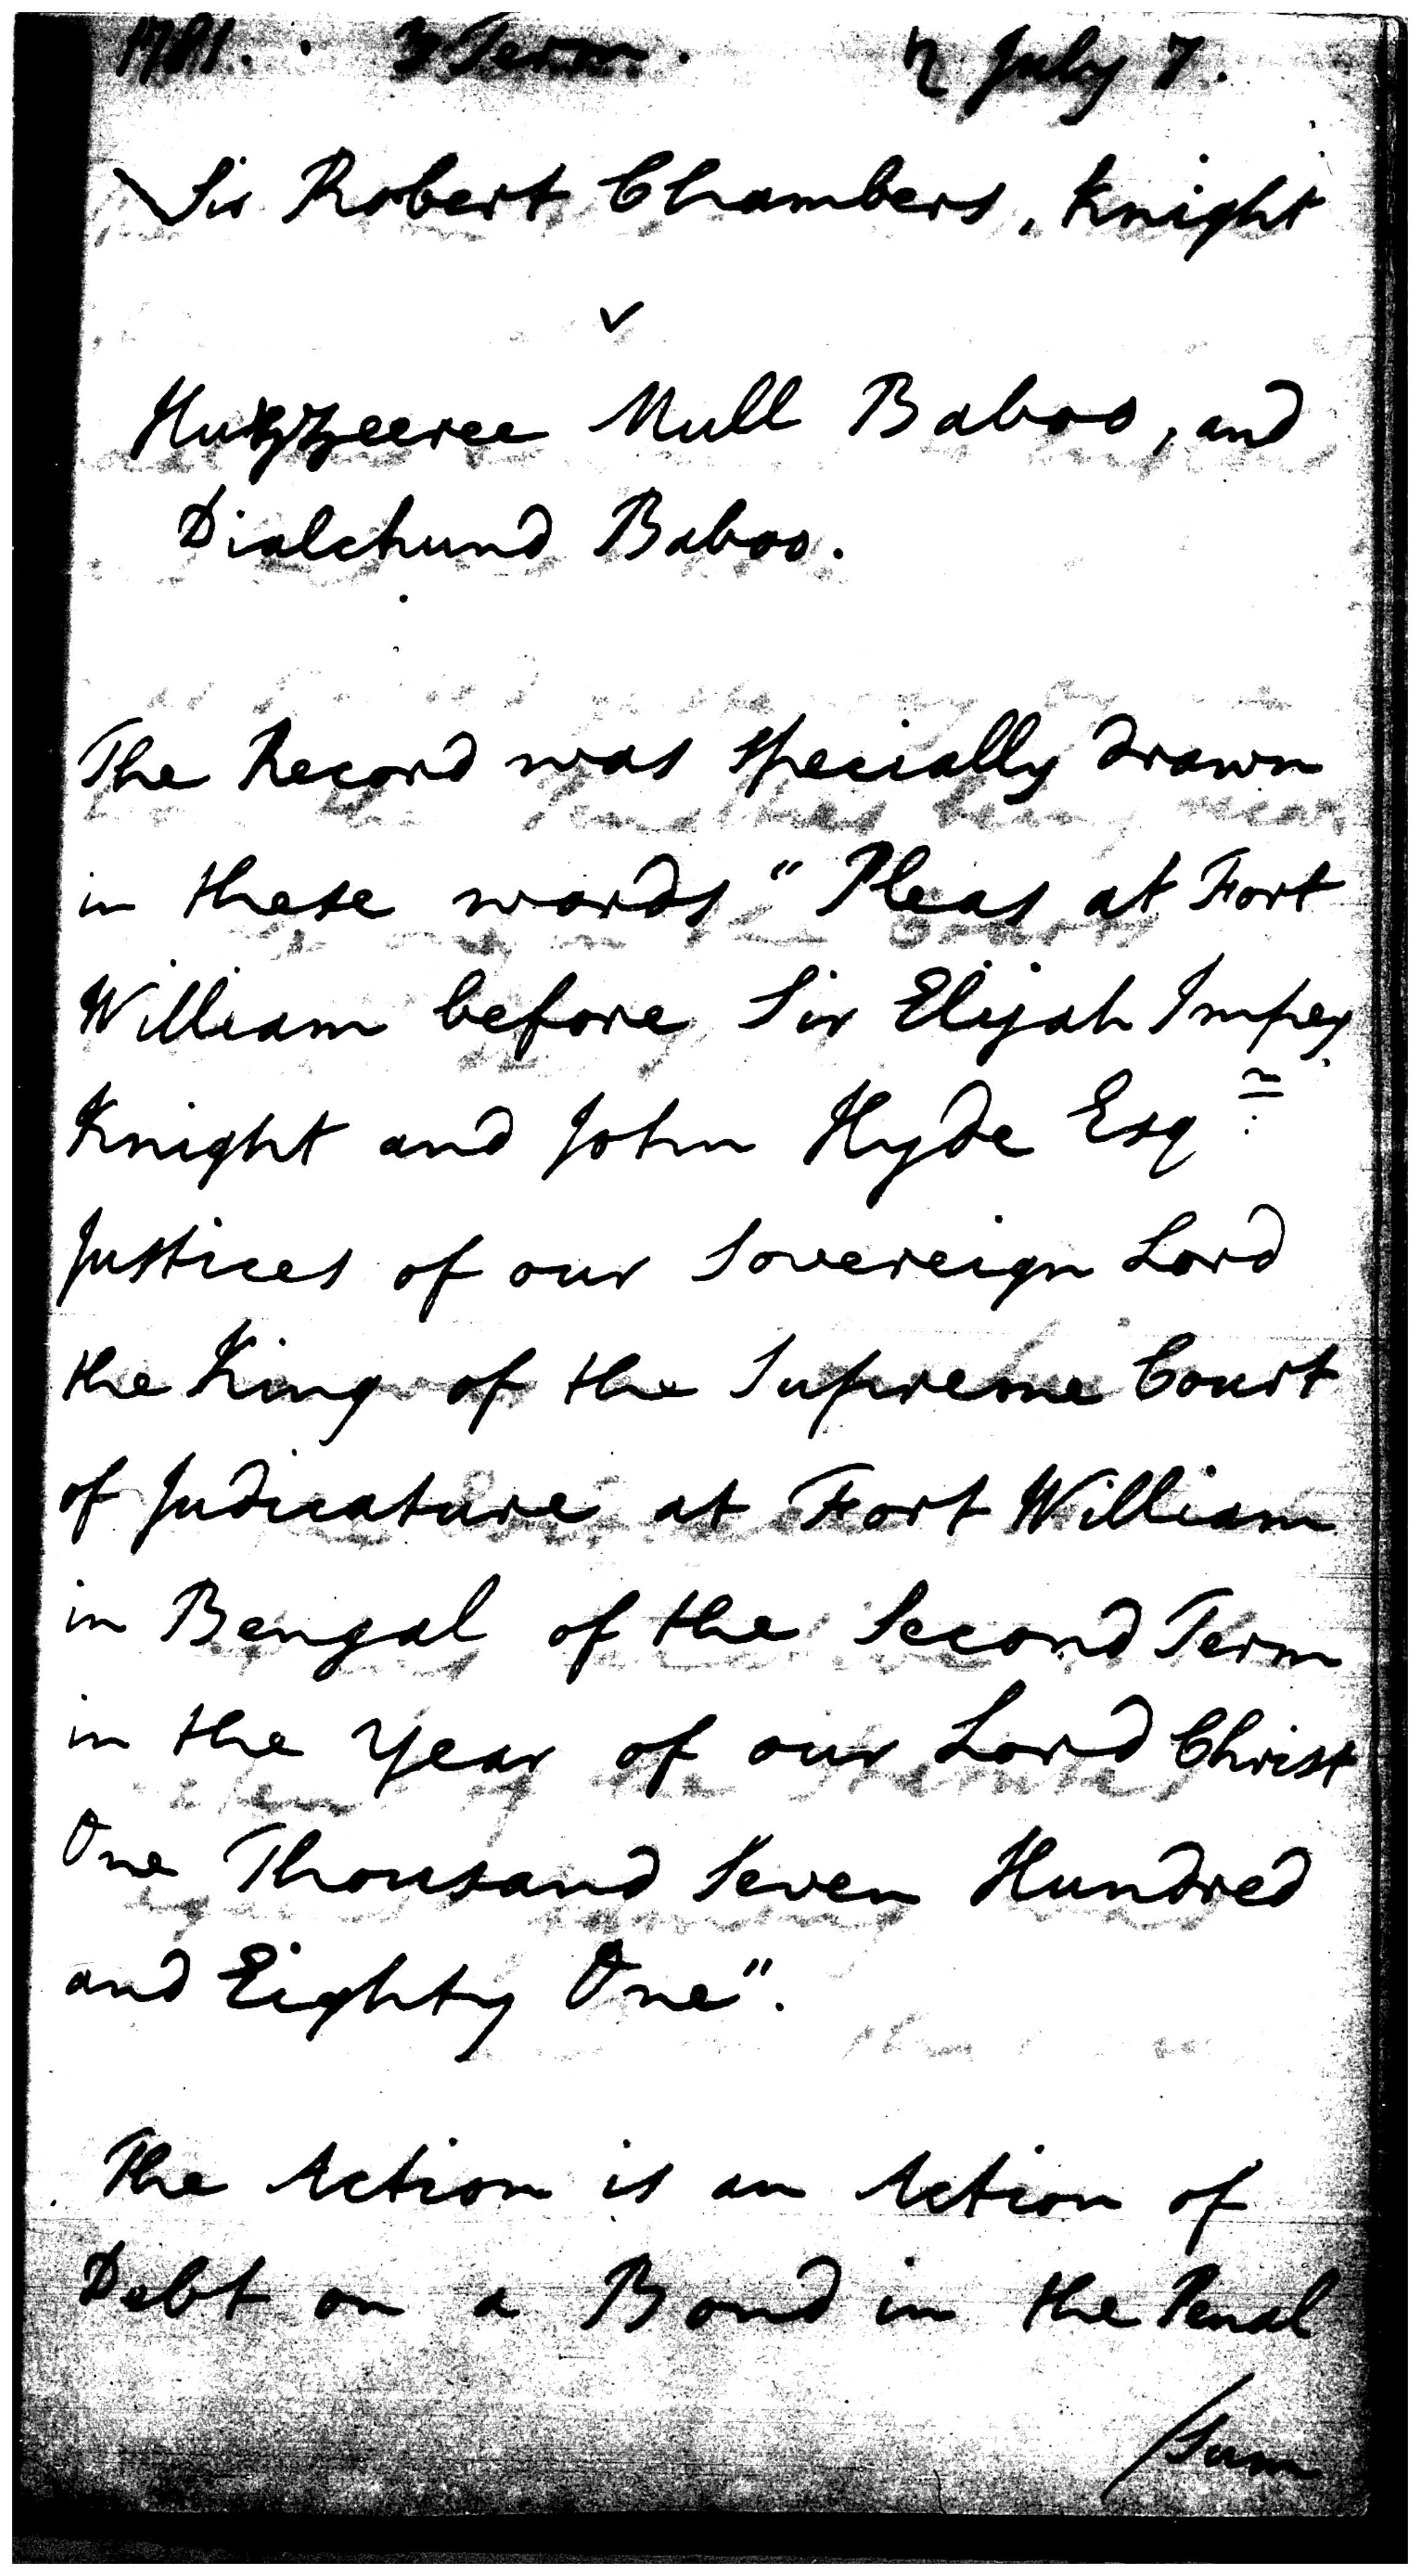 1781. 3 Term. ♄ July 7.
Sir Robert Chambers, Knight
v
Huzzeeree Mull Baboo, and
Dialchund Baboo.
The Record was specially drawn
in these words "Pleas at Fort
William before Sir Elijah Impey
Knight and John Hyde Esq
Justices of our Sovereign Lord
the King of the Supreme Court
of Judicature at Fort William
in Bengal of the Second Term
in the Year of our Lord Christ
One Thousand Seven Hundred
and Eighty One".
The Action is an Action of
Debt on a Bond in the Penal
/Sum